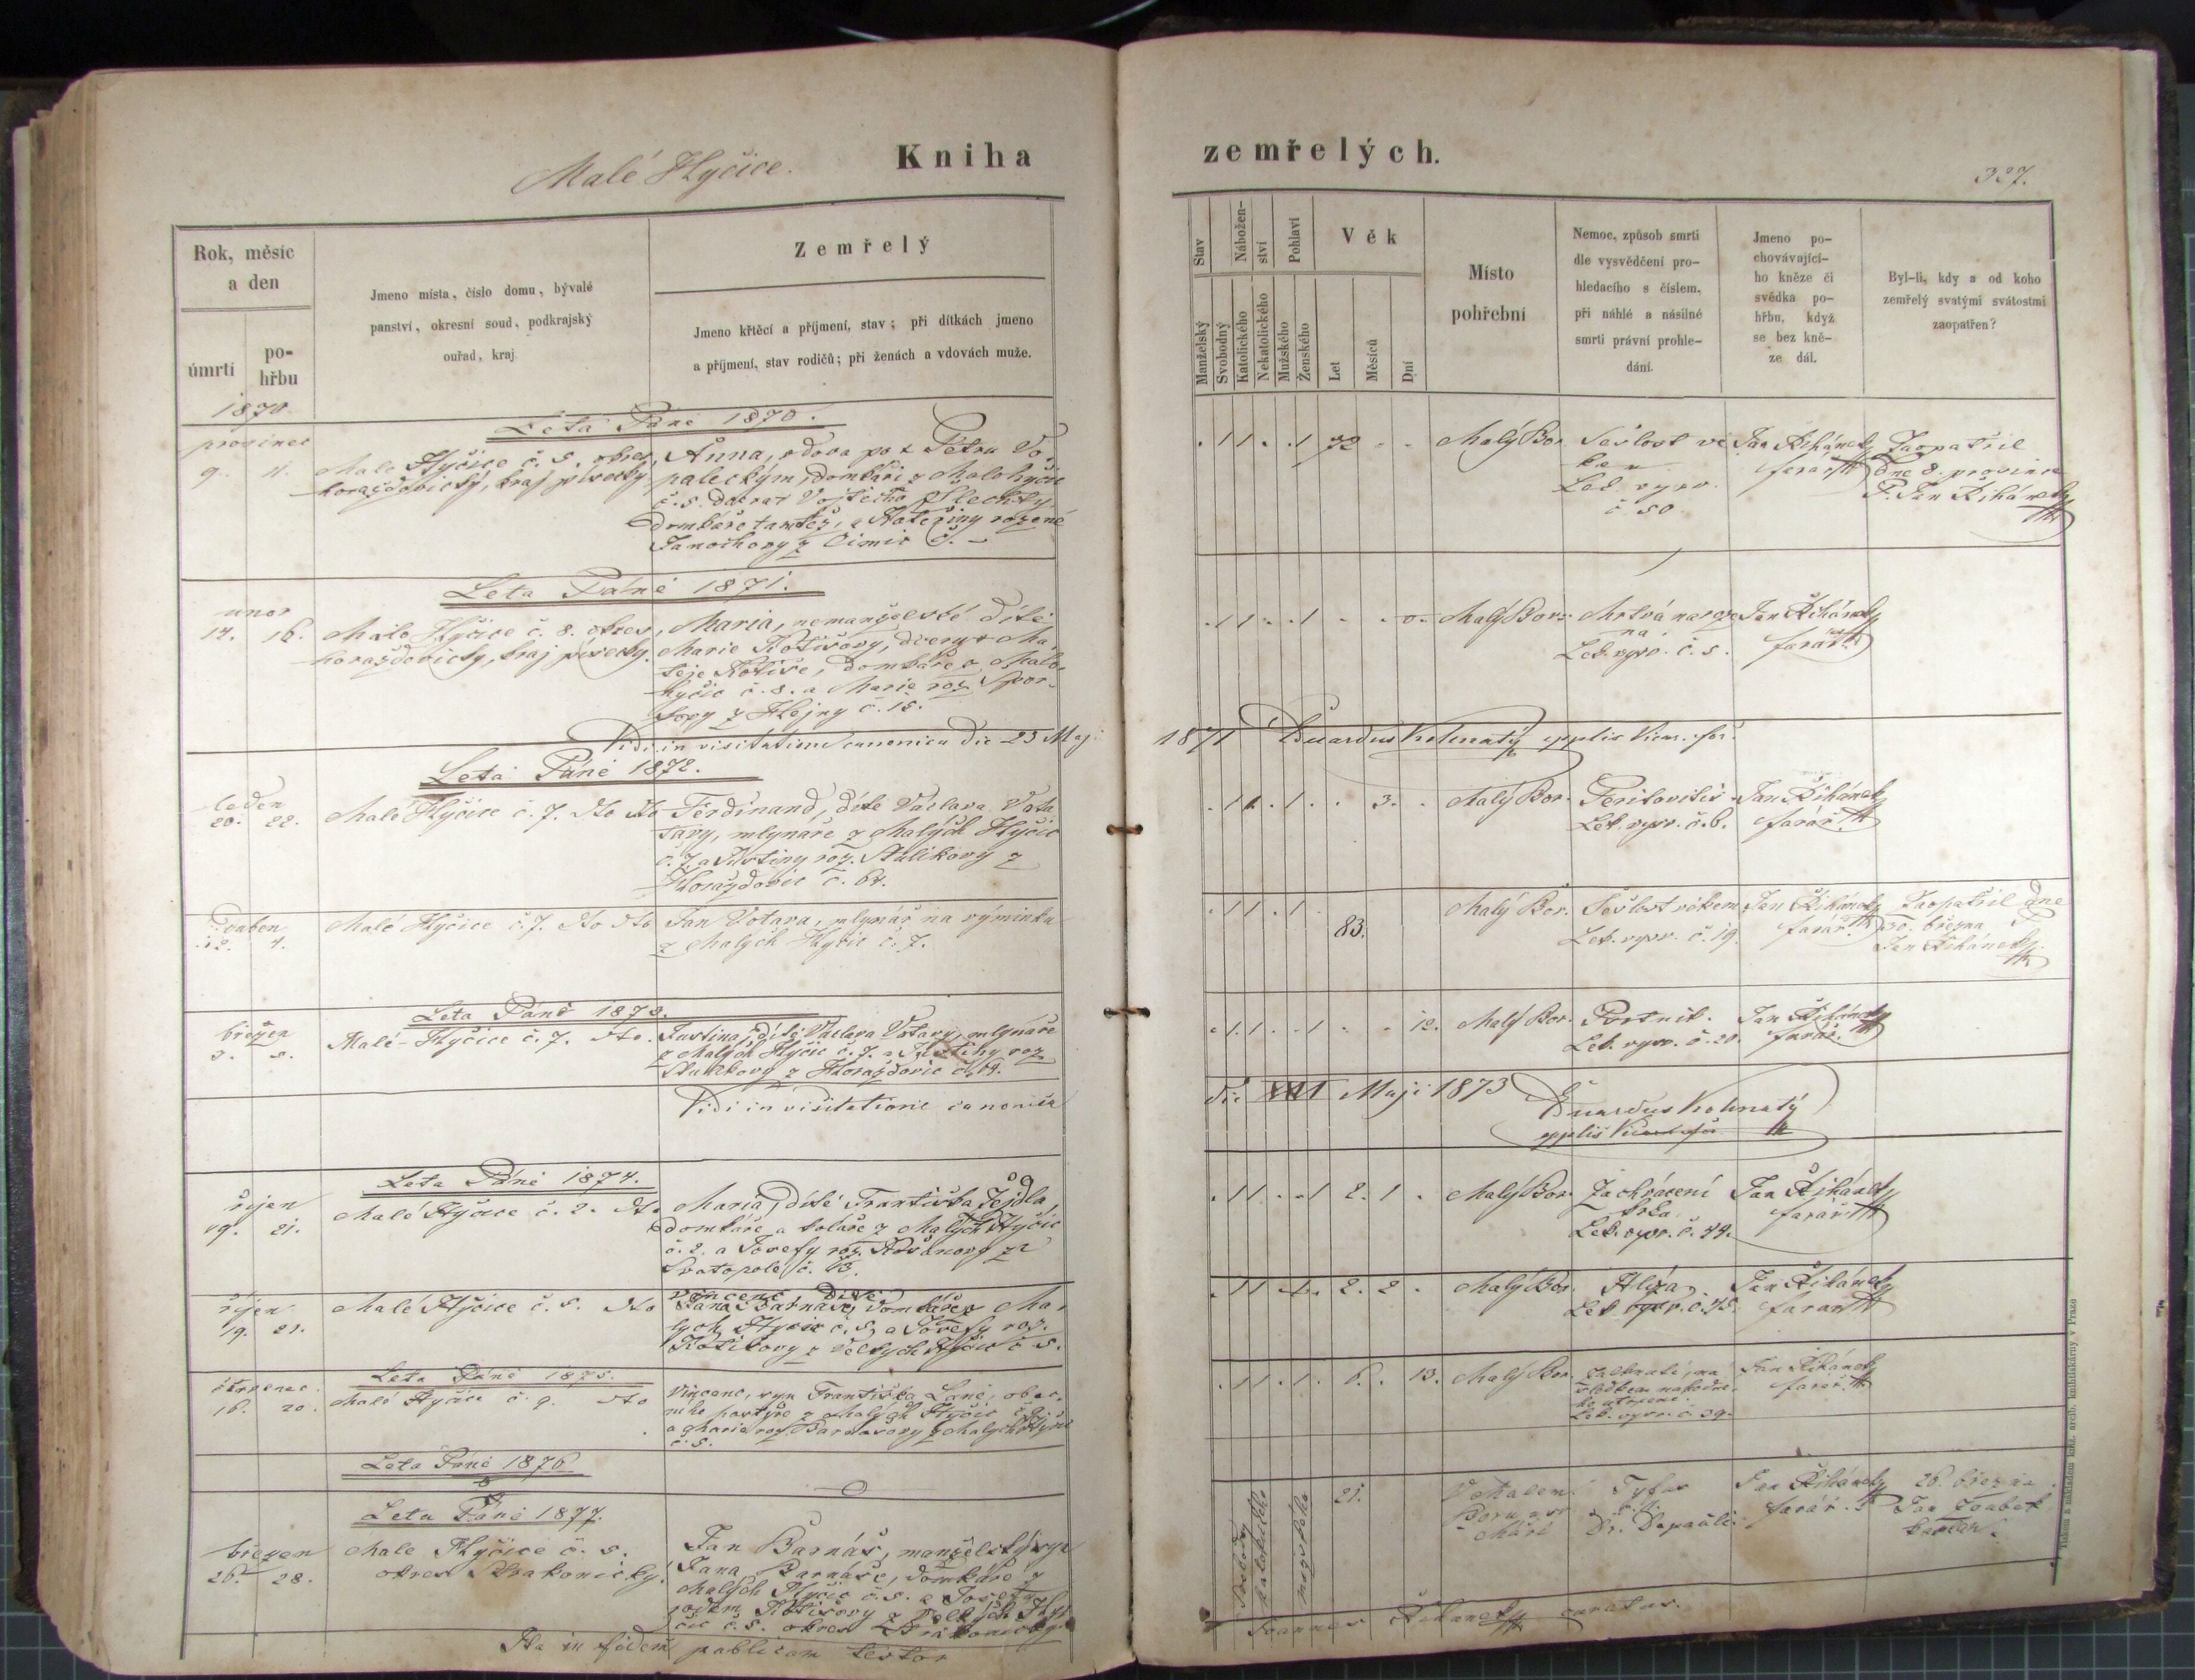 Malé Hyčice.
Kniha
zemřelých.
327.
Rok, měsíc
a den
úmrtí
po-
hřbu
Jmeno místa, číslo domu, bývalé
panství, okresní soud, podkrajský
ouřad, kraj
Zemřelý
Jmeno křtěcí a příjmení, stav; při dítkách jmeno
a příjmení, stav rodičů; při ženách a vdovách muže.
Stav
Nábožen-
ství
Pohlaví
Věk
Manželský
Svobodný
Katolického
Nekatolického
Mužského
Ženského
Let
Měsíců
Dní
Místo
pohřební
Nemoc, způsob smrti
dle vysvědčení pro-
hledacího s číslem,
při náhlé a násilné
smrti právní prohle-
dání.
Jmeno po-
chovávající-
ho kněze či
svědka po-
hřbu, když
se bez kně-
ze dál.
Byl-li, kdy a od koho
zemřelý svatými svátostmi
zaopatřen?
1870
Léta Páně 1870.
prosinec
9. 11.
Malé Hyčice č. 5. okres
horažďovický, kraj písecký
Anna, vdova po Petru Vo-
paleckým, domkáři z Malohyčic
č. 5. dcera Vojtěcha Šlechty,
domkáře tamtéž, a Kateřiny rozené
Janochovy z Čimic č. –
72
Malý Bor
Sešlost vě
kem
Lek. vysv.
č 50.
Jan Řihánek
farář
Zaopatřil
dne 8. prosince
P. Jan Řihánek
Leta Páně 1871.
únor
14. 16.
Malé Hyčice č. 8. okres
horažďovický, kraj písecký.
Maria, nemanželské dítě
Marie Kotišovy, dcery Ma-
těje Kotiše, domkáře z Malo-
hyčic č. 8. a Marie roz. Spor-
sovy z Hlejny č. 15.
Malý Bor
Mrtvá naroze
na
Lek. vysv. č. 5.
Jan Řihánek
farář
Vidi in visitatione canonica die 25 Maji
1871 Eduardus Kolinatý
Leta Páně 1872.
leden
20. 22.
Malé Hyčice č. 7. tto tto
Ferdinand, dítě Václava Vota
vavy, mlynáře z Malých Hyčic
č. 7. a Justiny roz. Stulíkovy z
Horažďovic č. 64.
3.
Malý Bor.
Peritonitis
Lek. vysv. č. 6.
Jan Řihánek
farář.
Duben
2. 4.
Malé Hyčice č. 7. tto tto
Jan Votava, mlynář na výminku
z Malých Hyčic č. 7.
83.
Malý Bor.
Sešlost věkem
Lek. vysv. č. 19.
Jan Řihánek
farář.
Zaopatřil dne
30. března P
Jan Řihánek
Leta Páně 1873.
březen
Malé Hyčice č. 7. tto.
Justina, dítě Václava Votavy, mlynáře
z Malých Hyčic č. 7. a Justiny roz.
Stulíkovy z Horažďovic č. 64.
12.
Malý Bor.
Psotník.
Lek. vysv. č. 20.
Jan Řihánek
farář.
Vidi in visitatione canonica
die XXI Maji 1873
Eduardus Kolinatý
Leta Páně 1874.
říjen
19. 21.
Malé Hyčice č. 2. tto
Maria, dítě Františka Fejdla,
domkáře a koláře z Malých Hyčic
č. 2. a Josefy roz.
Svatopole č. 13.
2. 1.
Malý Bor.
Zachvácení
krku
Lek. vysv. č. 44.
Jan Řihánek
farář
říjen
19. 21.
Malé Hyčice č. 5. tto
Vincenc dítě
Jana Barnáše, domkáře z Ma-
lých Hyčic č. 5, a Josefy roz.
Kotišovy z Velkých Hyčic č 5.
2. 2.
Malý Bor.
Hlíza
Lek. vysv. č. 45.
Jan Řihánek
farář
Leta Páně 1875.
červenec
18. 20.
Malé Hyčice č. 9. tto
Vincenc, syn Františka Lané, obec-
ního pastýře z Malých Hyčic č. 9.
a Marie roz. Barnášovy z Malých Hyčic
č. 5.
6. 13.
Malý Bor.
Lek. vysv. č. 39.
Jan Řihánek
farář.
Leta Páně 1876
Leta Páně 1877.
březen
26. 28.
Malé Hyčice č. 5.
okres Strakonický.
Jan Barnáš, manželský syn
Jana Barnáše, domkáře z
Malých Hyčic č. 5. a Josefy
rodem Kotišovy z Velkých Hy-
čic č. 5. okres Strakonický.
svobodný
katolického
mužského
21.
V Malém
Boru
Tyfus
Jan Řihánek
farář.
26. března
Jan
kaplan.
Ita in fidem publicam testor
Joannes Řihanek curatus.
Tiskem a nákladem kníž. arcib. knihtiskárny v Praze